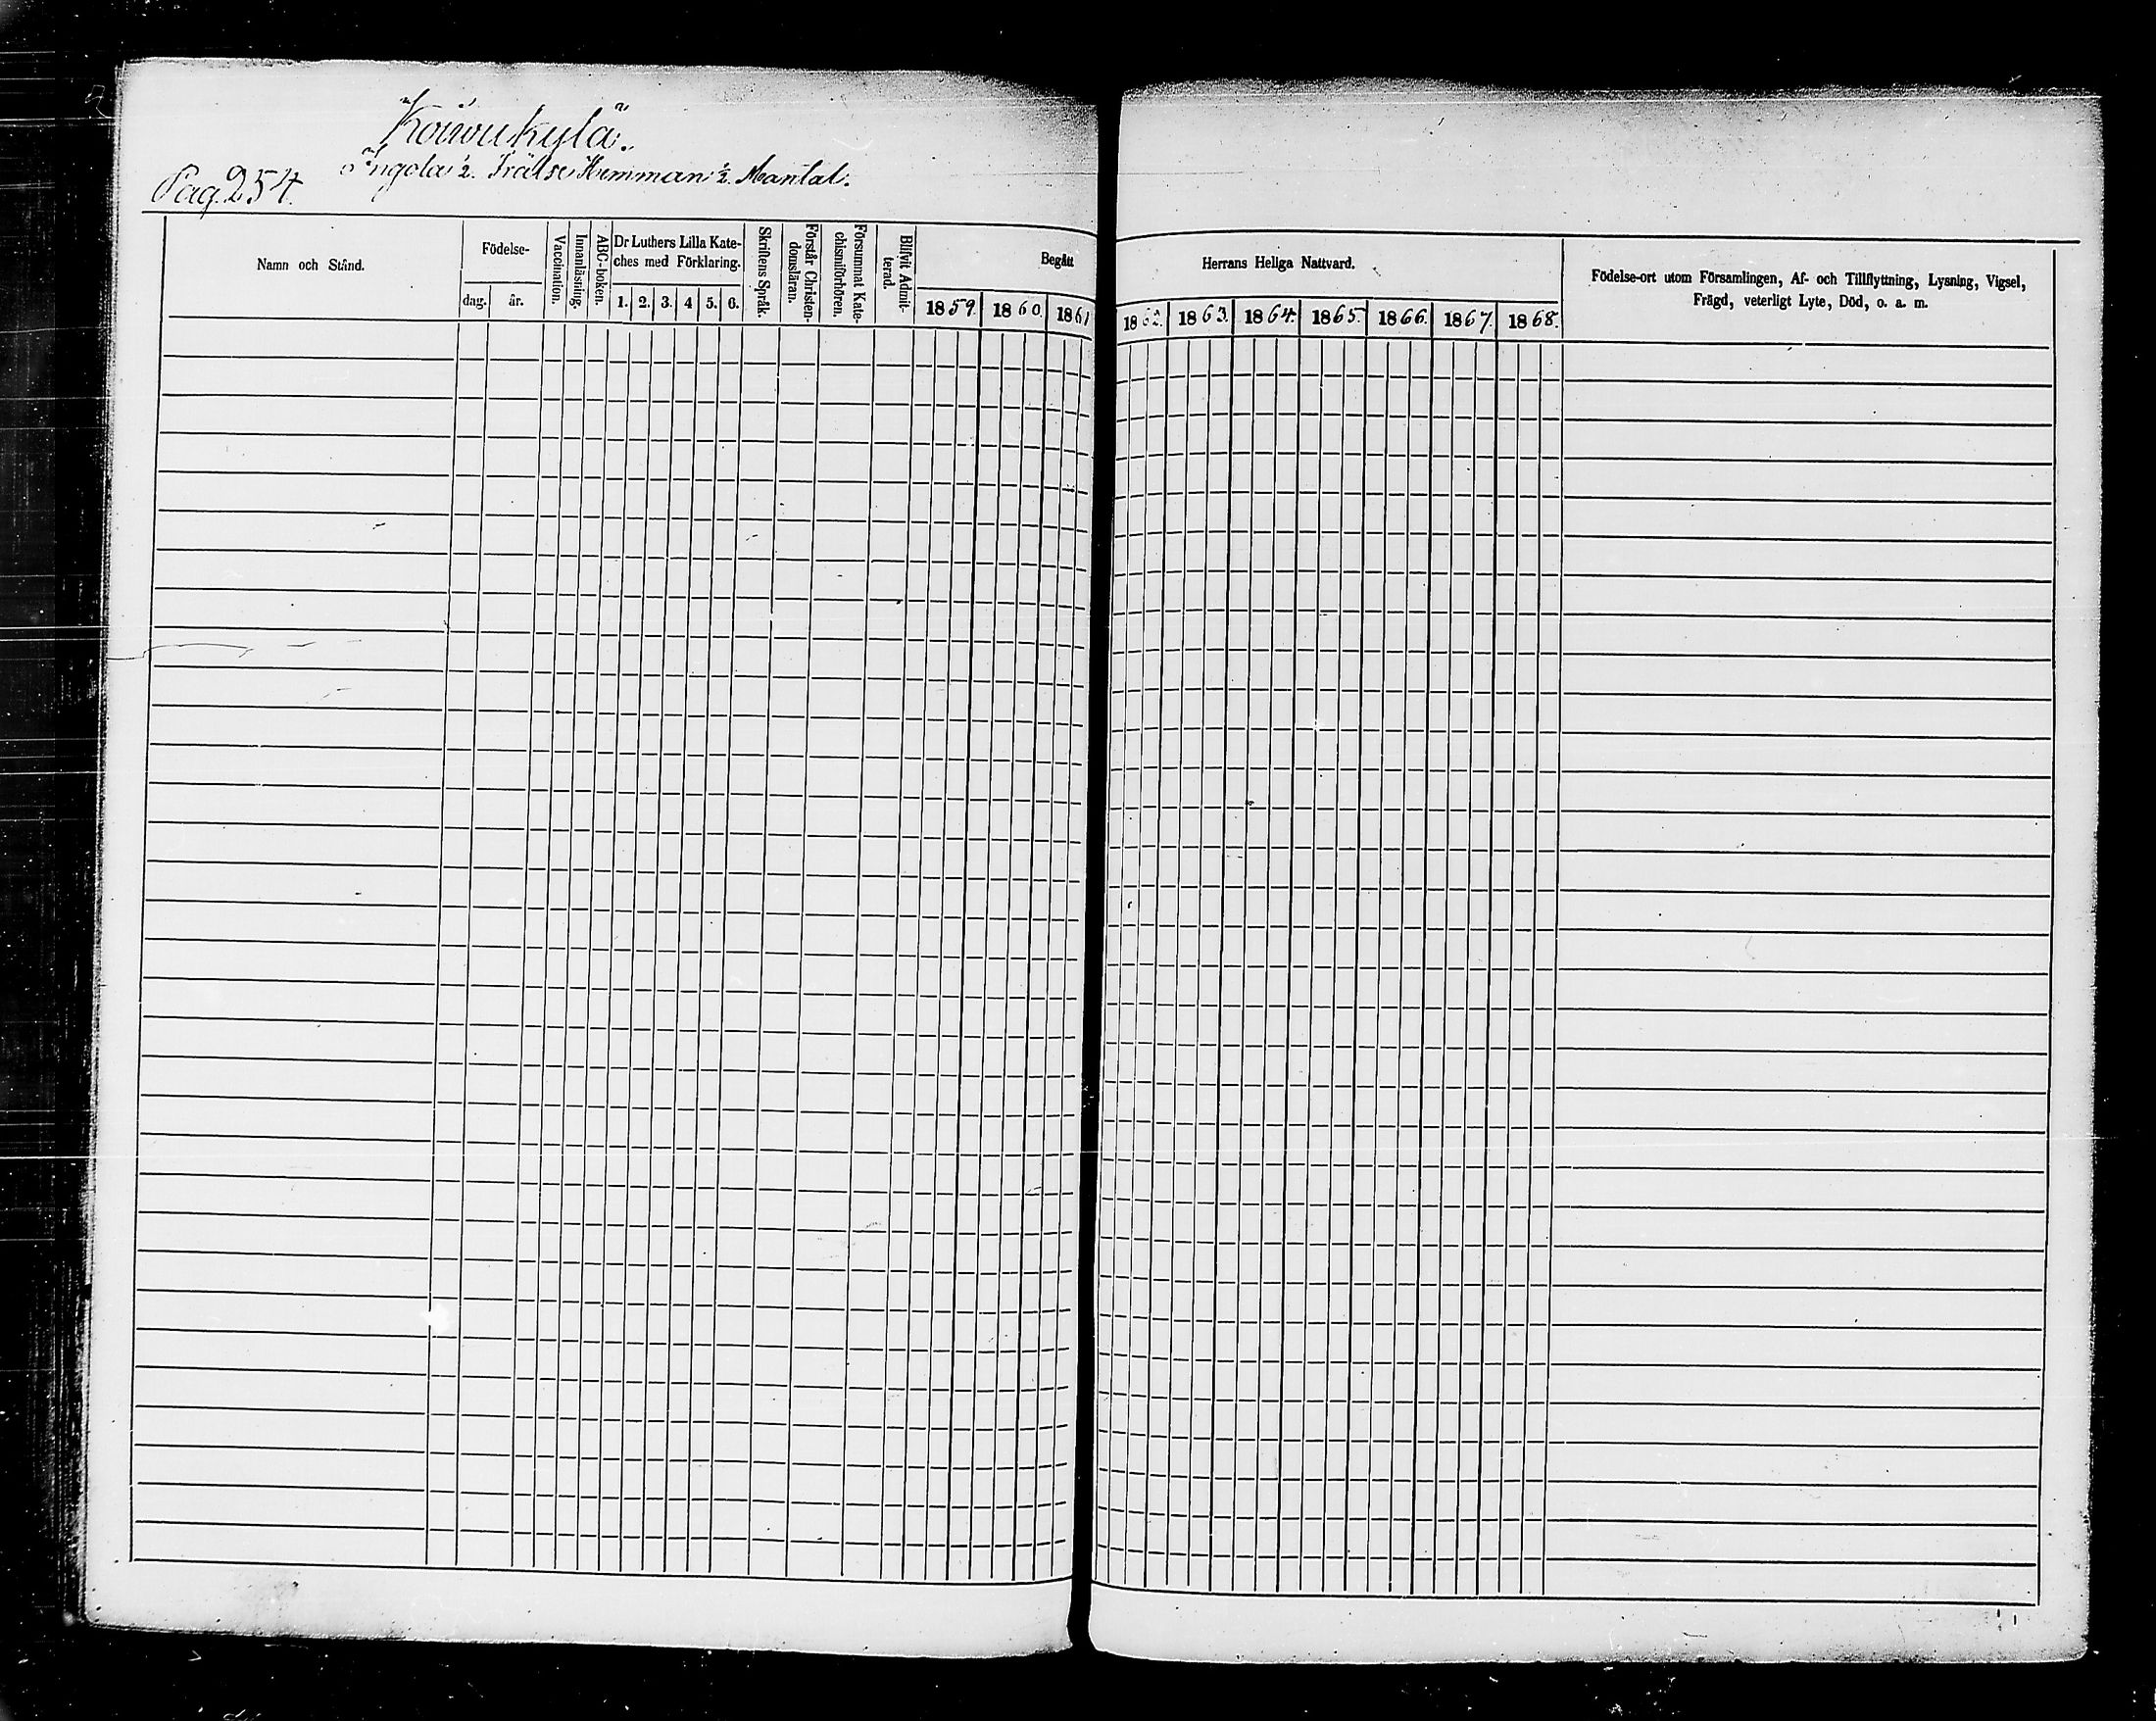 Koivukylä.
Ingola ½. Frälse Hemman ½ Mantal.
Pag. 254.
Namn och Stånd.
Födelse-
dag.
år.
Vaccination.
Innanläsning.
ABC-boken.
Dr Luthers Lilla Kate-
ches med Förklaring.
1. 2. 3. 4 5. 6.
Skriftens Språk.
Förstår Christen-
domsläran.
Försummat Kate-
chismiförhören.
Blifvit Admit-
terad.
Begått
1859. 1860. 1861
Herrans Heliga Nattvard.
1862. 1863. 1864. 1865. 1866. 1867. 1868.
Födelse-ort utom Församlingen, Af- och Tillflyttning, Lysning, Vigsel,
Frägd, veterligt Lyte, Död, o. a. m.